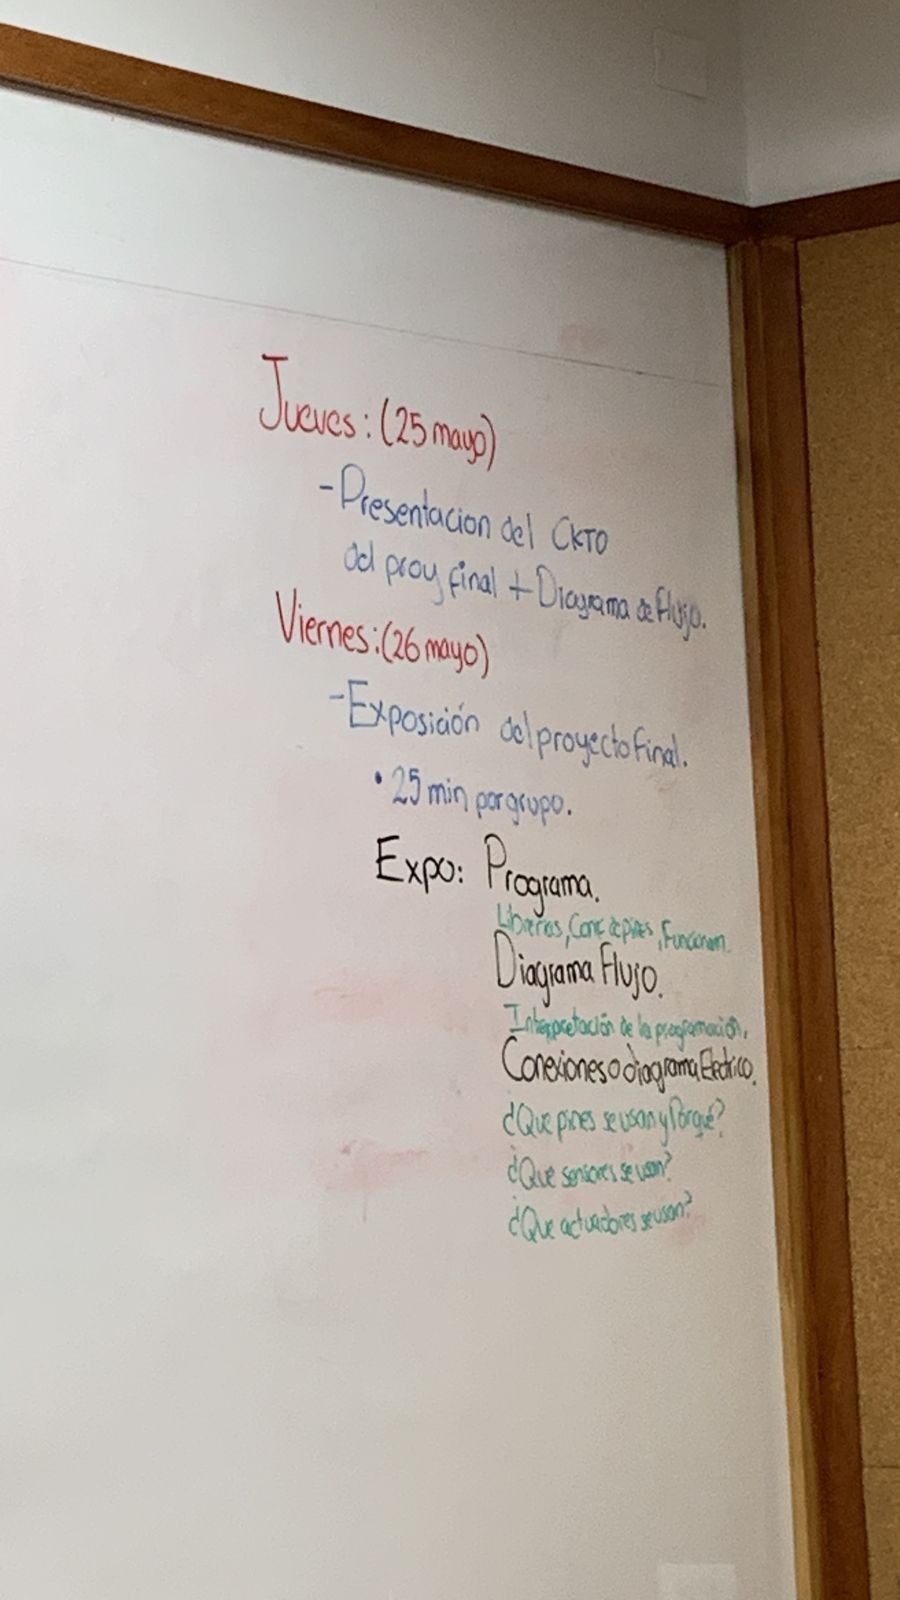 Jueves: (25 mayo)
- Presentacion del CKTO
del proy final + Diagrama de Flujo.
Viernes: (26 mayo)
- Exposición del proyecto Final.
• 25 min por grupo.
Expo: Programa.
Librerias, Conf de pines, Funcionam.
Diagrama Flujo.
Interpretación de la programación.
Conexiones o diagrama Electrico.
¿Que pines se usan y Porqué?
¿Que sensores se usan?
¿Que actuadores se usan?